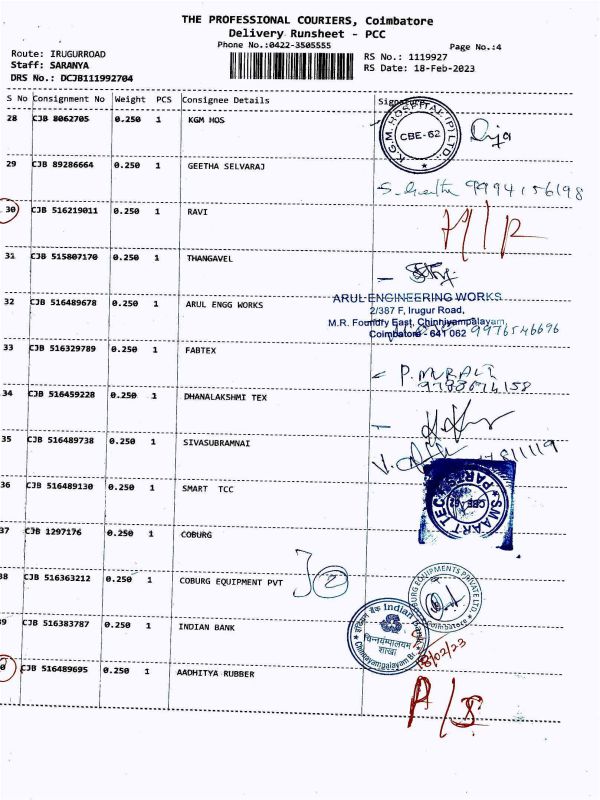 THE PROFESSIONAL COURIERS, Coimbatore
Delivery Runsheet - PCC
Phone No.:0422-3505555
Page No.:4
Route: IRUGURROAD
Staff: SARANYA
DRS No.: DCJB111992704
RS No.: 1119927
RS Date: 18-Feb-2023
S No Consignment No Weight PCS Consignee Details Signature
28 CJB 8062705 0.250 1 KGM HOS
K.G.M. HOSPITAL (P) LTD. CBE-62
29 CJB 89286664 0.250 1 GEETHA SELVARAJ
S. Geetha 9994156198
30 CJB 516219011 0.250 1 RAVI
31 CJB 515807170 0.250 1 THANGAVEL
32 CJB 516489678 0.250 1 ARUL ENGG WORKS
ARUL ENGINEERING WORKS
2/387 F, Irugur Road,
M.R. Foundry East, Chinhiyampalayam,
Coimbatore - 641 062 9976546696
33 CJB 516329789 0.250 1 FABTEX
P. MURALI
34 CJB 516459228 0.250 1 DHANALAKSHMI TEX
35 CJB 516489738 0.250 1 SIVASUBRAMNAI
36 CJB 516489130 0.250 1 SMART TCC
SMAART TEC
37 CJB 1297176 0.250 1 COBURG
38 CJB 516363212 0.250 1 COBURG EQUIPMENT PVT
COBURG EQUIPMENTS PRIVATE LTD. Coimbatore
39 CJB 516383787 0.250 1 INDIAN BANK
इंडियन बैंक Indian Bank
चिन्नियम्पालयम
शाखा
Chinniyampalayam Br.
18/02/23
0 CJB 516489695 0.250 1 AADHITYA RUBBER